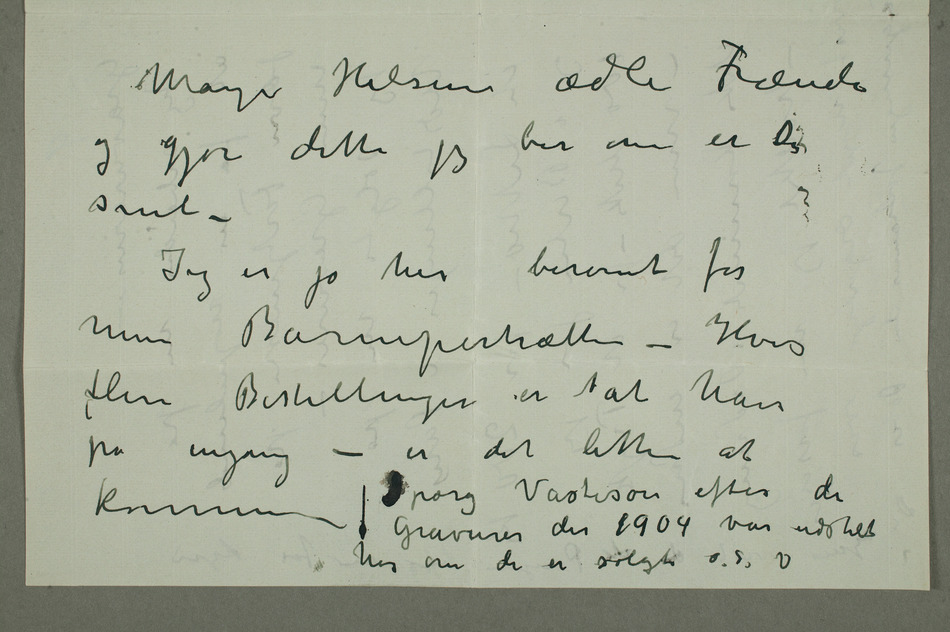 Mange Hilsener ædle Frænde
og gjør dette jeg ber om er Du
snil –
Jeg er jo her berømt for
mine Barneportrætter – Hvis
flere Bestillinger er tat hær
på engang – er det lettere at
komme –
Spørg Vasteson efter de
Gravurer der 1904 var udstilt
her om de er solgte o.s.v